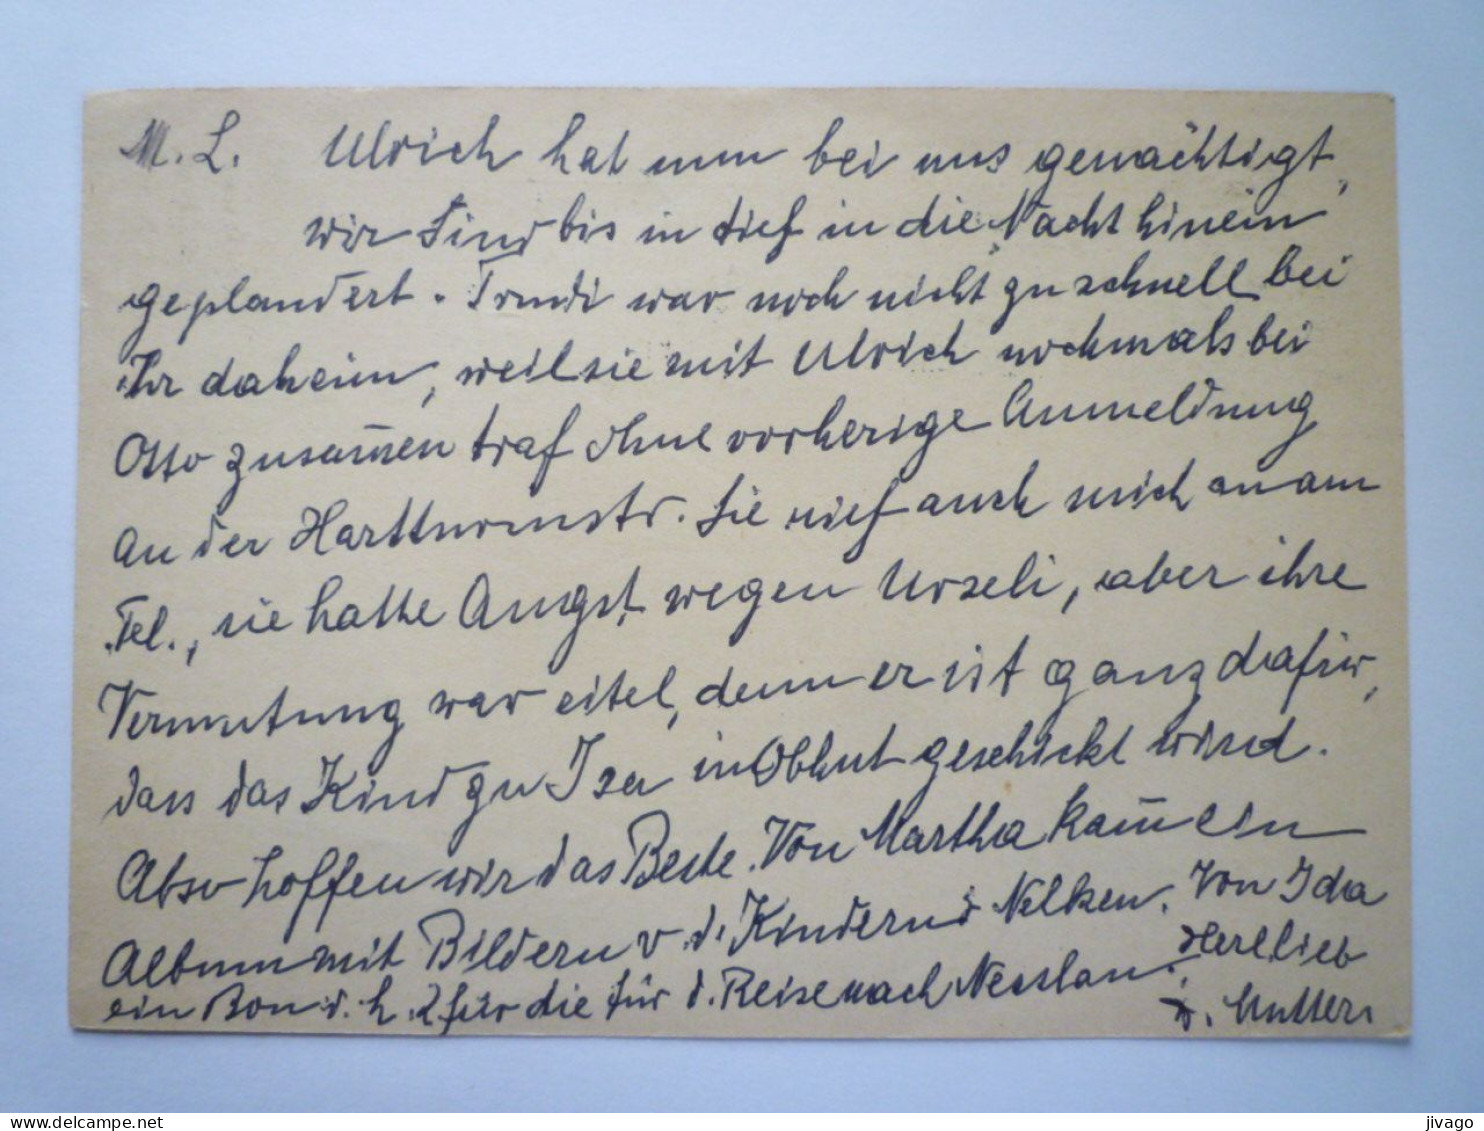 M. L. Ulrich hat nun bei uns genächtigt,
wir sind bis in tief in die Nacht hinein
geplaudert. Trudi war noch nicht zu schnell bei
Ihr daheim, weil sie mit Ulrich nochmals bei
Otto zusam̅en traf ohne vorherige Anmeldung
an der Hartturmstr. Sie rief auch mich an am
Tel., sie hatte Angst wegen Urseli, aber ihre
Vermutung war eitel, denn er ist ganz dafür,
dass das Kind zu Isa in Obhut geschickt wird.
Also hoffen wir das Beste. Von Martha kam̅en ein
Album mit Bildern v. d. Kindern u Nelken. Von Ida
ein Bon d. h. 2 für die für d. Reise nach Nesslau.
Herzlieb
d. Mutter
jivago